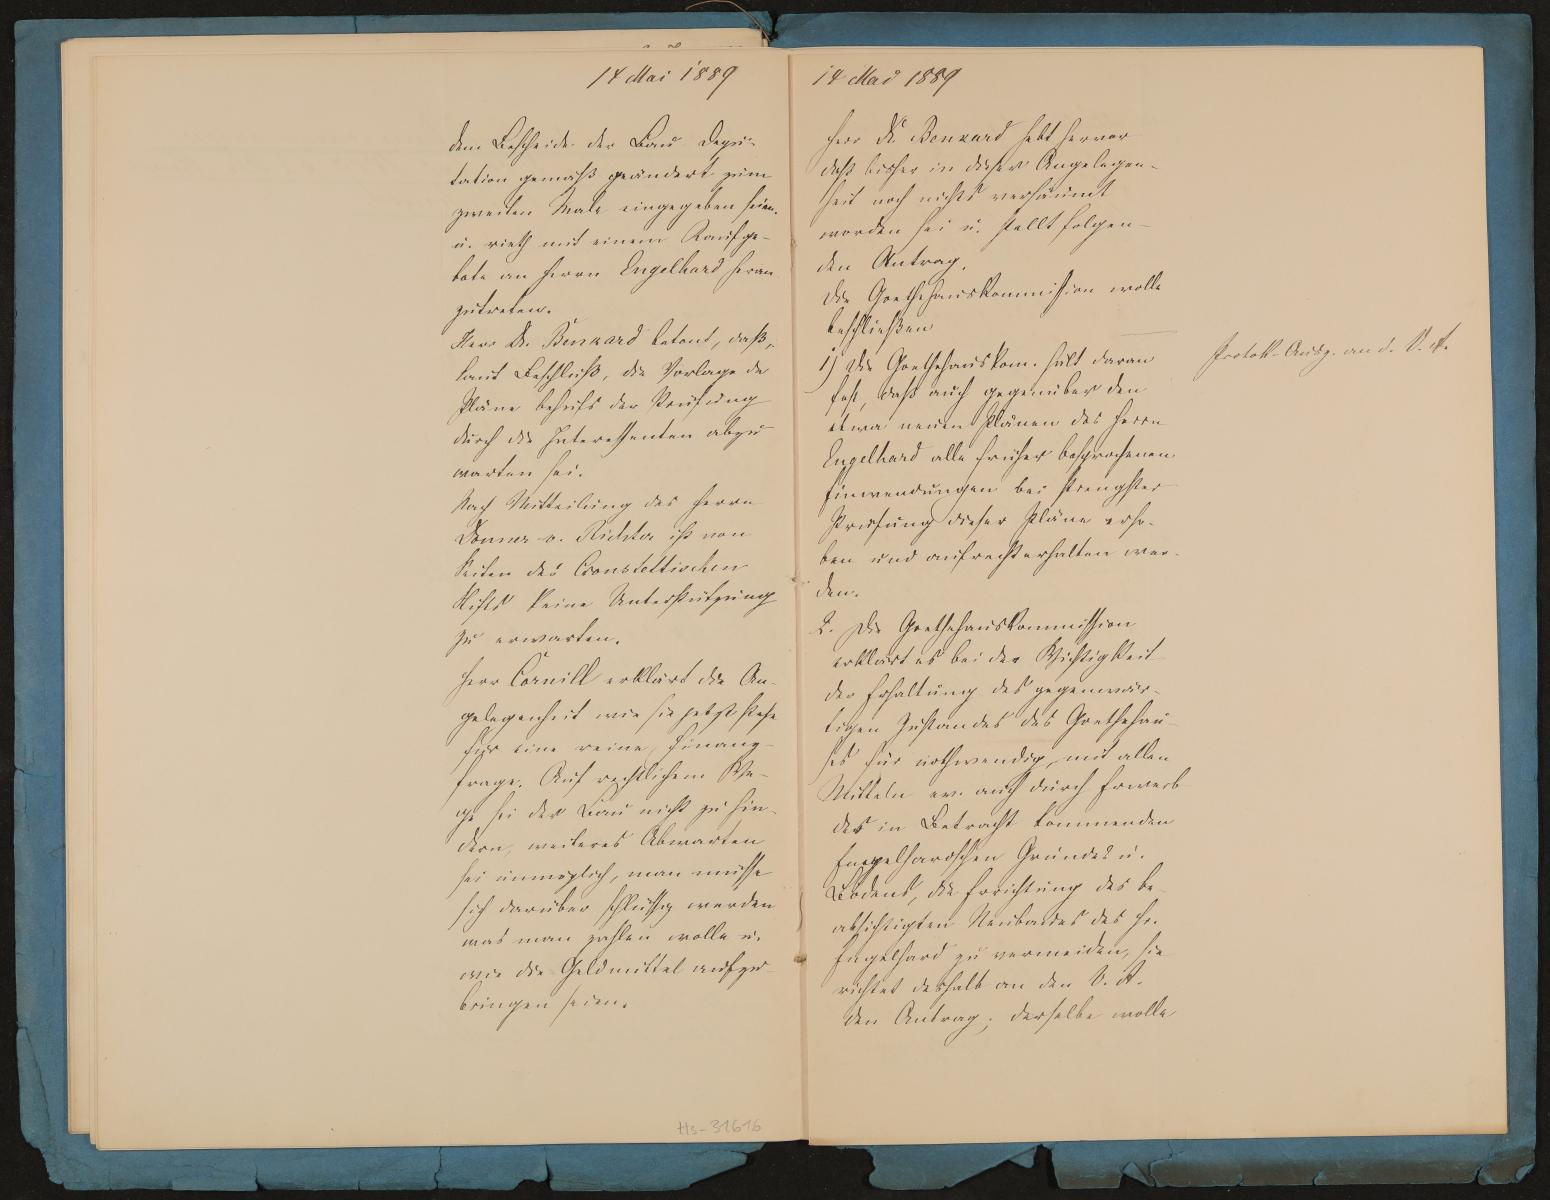 14 Mai 1889
dem Bescheide der Bau Depu-
tation gemäß geändert zum
zweiten Male eingegeben seien.
u. rieth mit einem Kaufge-
bote an Herrn Engelhard heran
zutreten.
Herr Dr. Benkard betont, daß,
laut Beschluß, die Vorlage de
Pläne behufs der Prüfung
durch die Interessenten abzu
warten sei.
Nach Mitteilung des Herrn
Donner-v. Richter ist von
Seiten des Cronstettischen
Stifts keine Unterstützung
zu erwarten.
Herr Cornill erklärt die An-
gelegenheit wie sie jetzt stehe
für eine reine Finanz-
frage. Auf rechtlichem We-
ge sei der Bau nicht zu hin-
dern, weiteres Abwarten
sei unmöglich, man müsse
sich darüber schlüssig werden
was man zahlen wolle u.
wie die Geldmittel aufzu-
bringen seien.
Hs-31616
14 Mai 1889
Herr Dr. Benkard hebt hervor
daß bisher in dieser Angelegen-
heit noch nichts versäumt
worden sei u. stellt folgen-
den Antrag.
Die Goethehauskommission wolle
beschließen
1) Die Goethehauskom. hält daran
fest, daß auch gegenüber den
etwa neuen Plänen des Herrn
Engelhard alle früher besprochenen
Einwendungen bei strengster
Prüfung dieser Pläne erho-
ben und aufrechterhalten wer-
den.
Protok-Ausz. an d. V. A.
2. Die Goethehauskommission
erklärt es bei der Wichtigkeit
der Erhaltung des gegenwär-
tigen Zustandes des Goethehau-
ses für nothwendig, mit allen
Mitteln ev. auch durch Erwerb
des in Betracht kommenden
Engelhardschen Grundes u.
Bodens, die Errichtung des be-
absichtigten Neubaues des Hr.
Engelhard zu vermeiden, sie
richtet deshalb an den V. A.
den Antrag; derselbe wolle